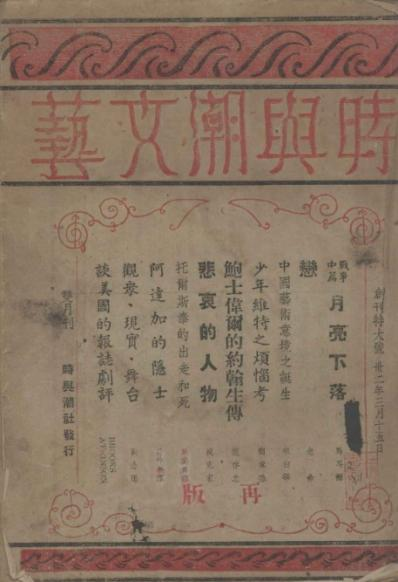 時與潮文藝
創刊特大號 卅二年三月十五日
戰爭中篇 月亮下落
戀
中國藝術意境之誕生
少年維特之煩惱考
鮑士偉爾的約翰生傳
悲哀的人物
托爾斯泰的出走和死
阿達加的隱士
觀衆・現實・舞台
談美國的報誌劇評
BROOKS ATKINSON
雙月刊 時與潮社發行
再版